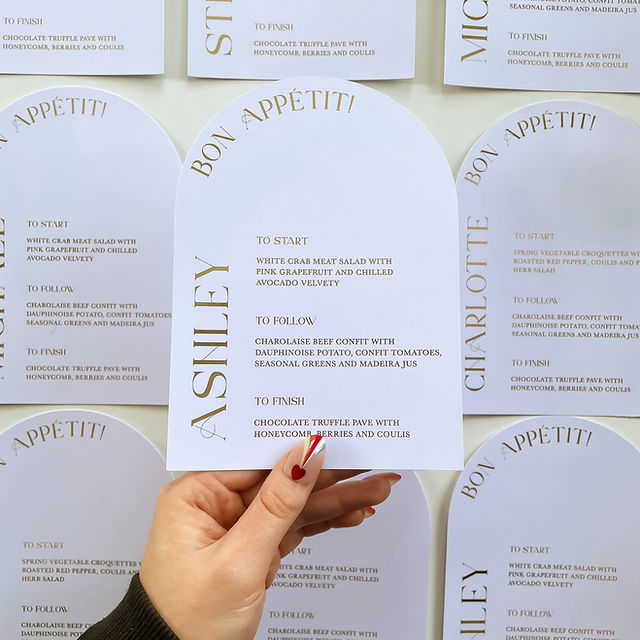 TO FINISH
CHOCOLATE TRUFFLE PAVE WITH
HONEYCOMB, BERRIES AND COULIS
TO FINISH
CHOCOLATE TRUFFLE PAVE WITH
HONEYCOMB, BERRIES AND COULIS
SEASONAL GREENS AND MADEIRA JUS
TO FINISH
CHOCOLATE TRUFFLE PAVE WITH
HONEYCOMB, BERRIES AND COULIS
APPÉTIT!
TO START
WHITE CRAB MEAT SALAD WITH
PINK GRAPEFRUIT AND CHILLED
AVOCADO VELVETY
TO FOLLOW
CHAROLAISE BEEF CONFIT WITH
DAUPHINOISE POTATO, CONFIT TOMATOES,
SEASONAL GREENS AND MADEIRA JUS
TO FINISH
CHOCOLATE TRUFFLE PAVE WITH
HONEYCOMB, BERRIES AND COULIS
BON APPÉTIT!
ASHLEY
TO START
WHITE CRAB MEAT SALAD WITH
PINK GRAPEFRUIT AND CHILLED
AVOCADO VELVETY
TO FOLLOW
CHAROLAISE BEEF CONFIT WITH
DAUPHINOISE POTATO, CONFIT TOMATOES,
SEASONAL GREENS AND MADEIRA JUS
TO FINISH
CHOCOLATE TRUFFLE PAVE WITH
HONEYCOMB, BERRIES AND COULIS
BON APPÉTIT!
CHARLOTTE
TO START
SPRING VEGETABLE CROQUETTES
ROASTED RED PEPPER, COULIS AND
HERB SALAD
TO FOLLOW
CHAROLAISE BEEF CONFIT WITH
DAUPHINOISE POTATO, CONFIT
SEASONAL GREENS AND MADEIRA JUS
TO FINISH
CHOCOLATE TRUFFLE PAVE WITH
HONEYCOMB, BERRIES AND COULIS
APPÉTIT!
TO START
SPRING VEGETABLE CROQUETTES
ROASTED RED PEPPER, COULIS
HERB SALAD
TO FOLLOW
WHITE CRAB MEAT SALAD WITH
PINK GRAPEFRUIT AND CHILLED
AVOCADO VELVETY
TO FOLLOW
CHAROLAISE BEEF CONFIT WITH
BON APPÉTIT!
TO START
WHITE CRAB MEAT SALAD WITH
PINK GRAPEFRUIT AND CHILLED
AVOCADO VELVETY
TO FOLLOW
CHAROLAISE BEEF CONFIT WITH